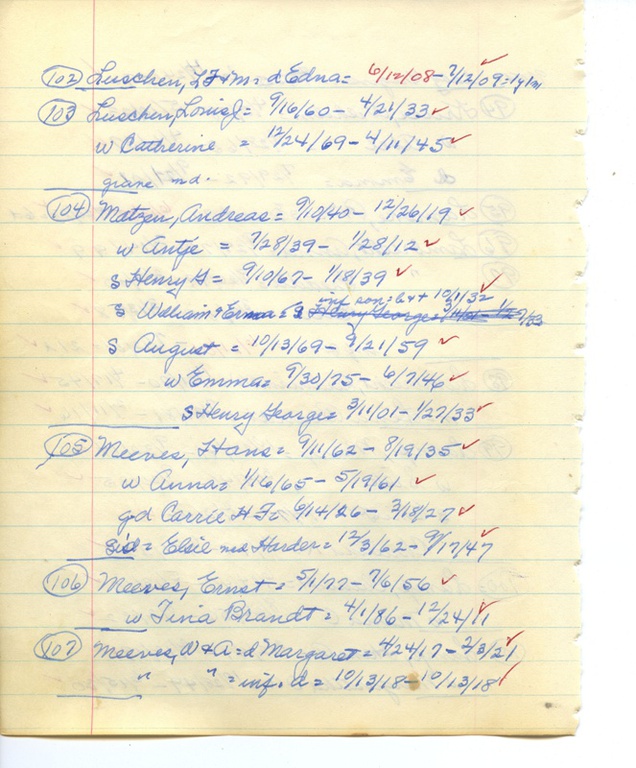 (102) Luschen, L F + m = d Edna = 6/12/08 - 7/12/09 = 1y1m
(103) Luschen, Louis J = 9/16/60 - 4/21/33 ✓
w Catherine = 12/24/69 - 4/11/45 ✓
grave md.
(104) Matzen, Andreas = 9/10/40 - 12/26/19 ✓
w Antje = 7/28/39 - 1/28/12 ✓
s Henry G = 9/10/67 - 1/18/39 ✓
inf son = b + d 10/1/32 ✓
s William + Erma = s Henry George = 3/11/01 - 1/27/33
s August = 10/13/69 - 9/21/59 ✓
w Emma = 9/30/75 - 6/7/46 ✓
s Henry George = 3/11/01 - 1/27/33 ✓
(105) Meeves, Hans = 9/11/62 - 8/19/35 ✓
w Anna = 1/16/65 - 5/19/61 ✓
gd Carrie H F = 6/14/26 - 3/18/27 ✓
sid = Elsie md Harder = 12/3/62 - 9/17/47 ✓
(106) Meeves, Ernst = 5/1/77 - 7/6/56 ✓
w Tina Brandt = 4/1/86 - 12/24/11 ✓
(107) Meeves, W + A = d Margaret = 4/24/17 - 2/3/21 ✓
" " = inf. d = 10/13/18 - 10/13/18 ✓